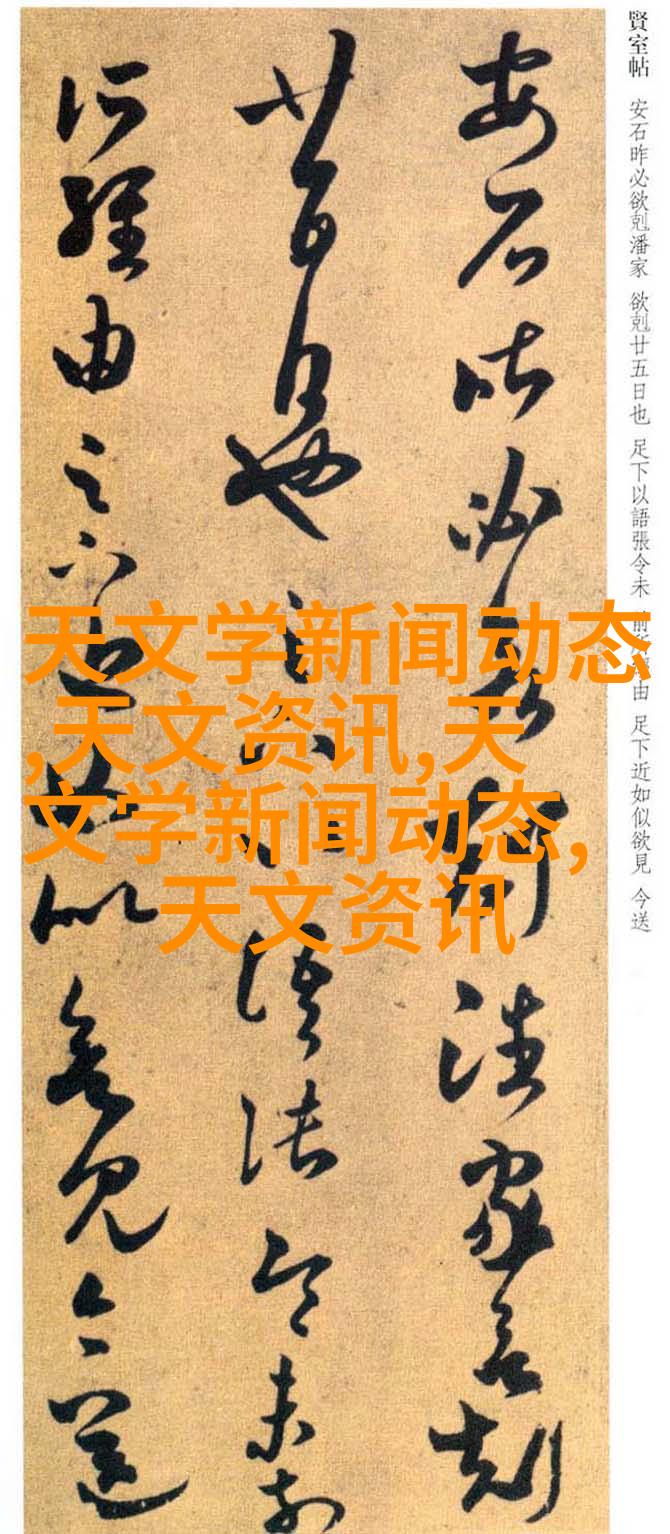 賢室帖 安石昨必欲剋潘家 欲剋廿五日也 足下以語張令未 由 足下近如似欲見 今送
安石昨必欲剋潘家欲剋
廿五日也足下以語張令未前
所經由足下近如似欲見今送
天文学新闻动态
,天文资讯,天
文学新闻动态,
天文资讯